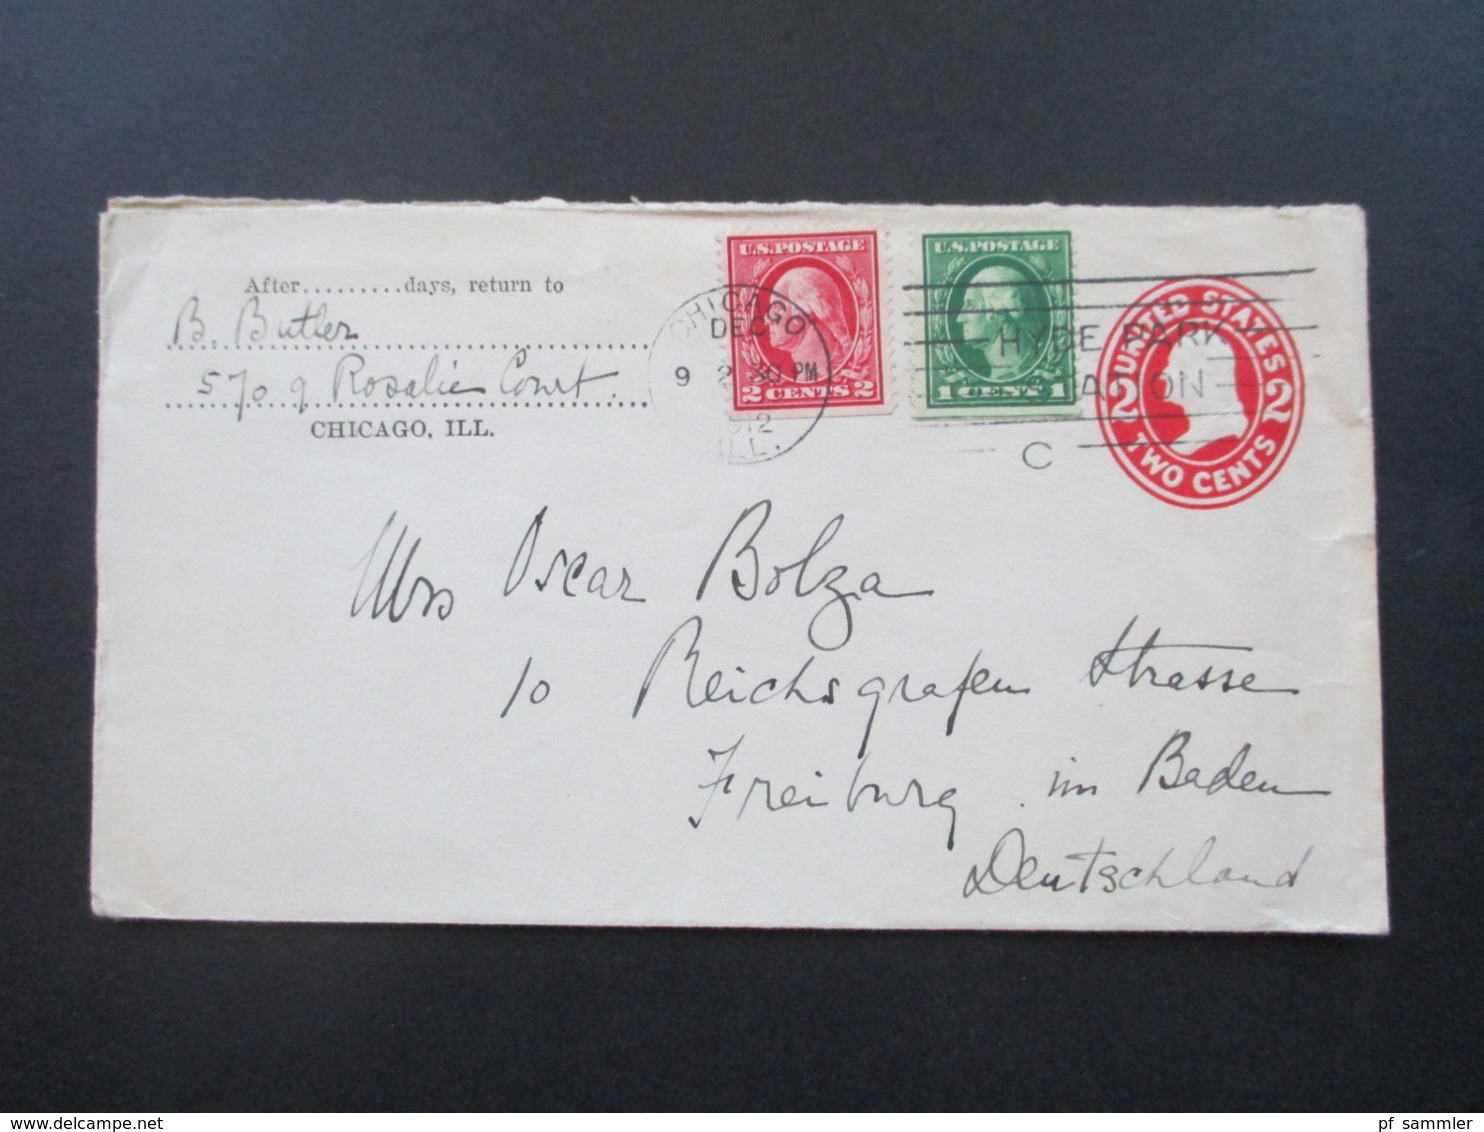 After.........days, return to
B. Butler
5709 Rosalie Court
CHICAGO, ILL.
CHICAGO
DEC
9 2 30 PM
ILL.
U.S. POSTAGE
2 CENTS 2
U.S. POSTAGE
1 CENTS 1
HYDE PARK
STATION
C
UNITED STATES
2 2
TWO CENTS
Mrs Oscar Bolza
10 Reichsgrafen Strasse
Freiburg im Baden
Deutschland
www.delcampe.net
pf_sammler